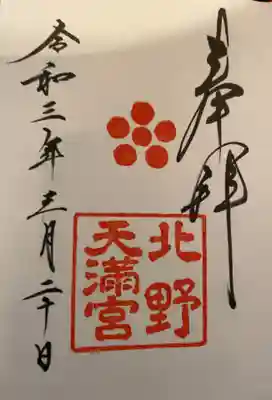 奉拝
北野
天満宮
令和三年三月二十日